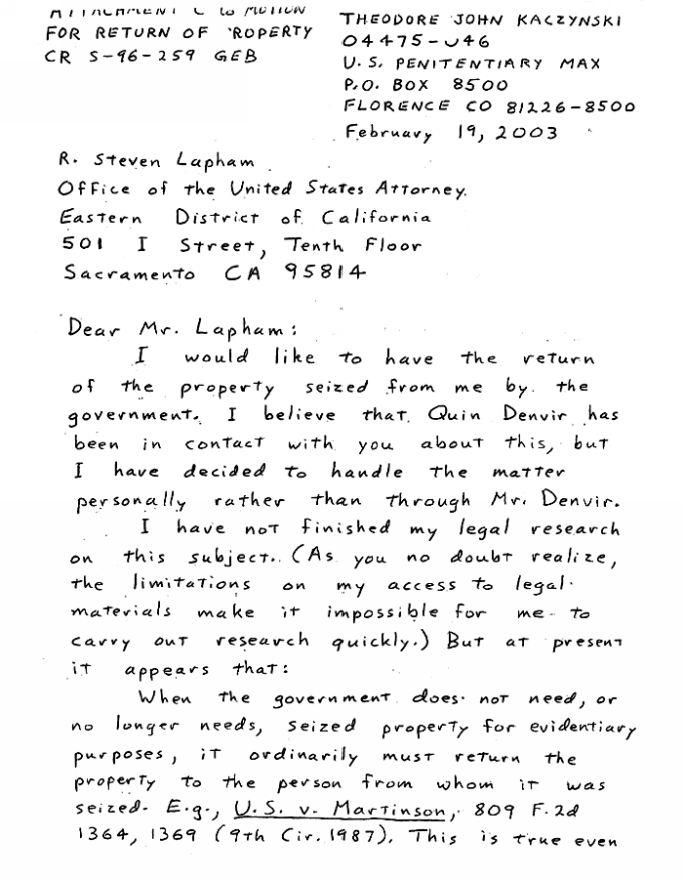 ATTACHMENT C to MOTION
FOR RETURN OF ROPERTY
CR S-96-259 GEB
THEODORE JOHN KACZYNSKI
04475-046
U.S. PENITENTIARY MAX
P.O. BOX 8500
FLORENCE CO 81226-8500
February 19, 2003
R. Steven Lapham
Office of the United States Attorney
Eastern District of California
501 I Street, Tenth Floor
Sacramento CA 95814
Dear Mr. Lapham:
I would like to have the return
of the property seized from me by the
government. I believe that Quin Denvir has
been in contact with you about this, but
I have decided to handle the matter
personally rather than through Mr. Denvir.
I have not finished my legal research
on this subject. (As you no doubt realize,
the limitations on my access to legal
materials make it impossible for me to
carry out research quickly.) But at present
it appears that:
When the government does not need, or
no longer needs, seized property for evidentiary
purposes, it ordinarily must return the
property to the person from whom it was
seized. E.g., U.S. v. Martinson, 809 F.2d
1364, 1369 (9th Cir. 1987). This is true even